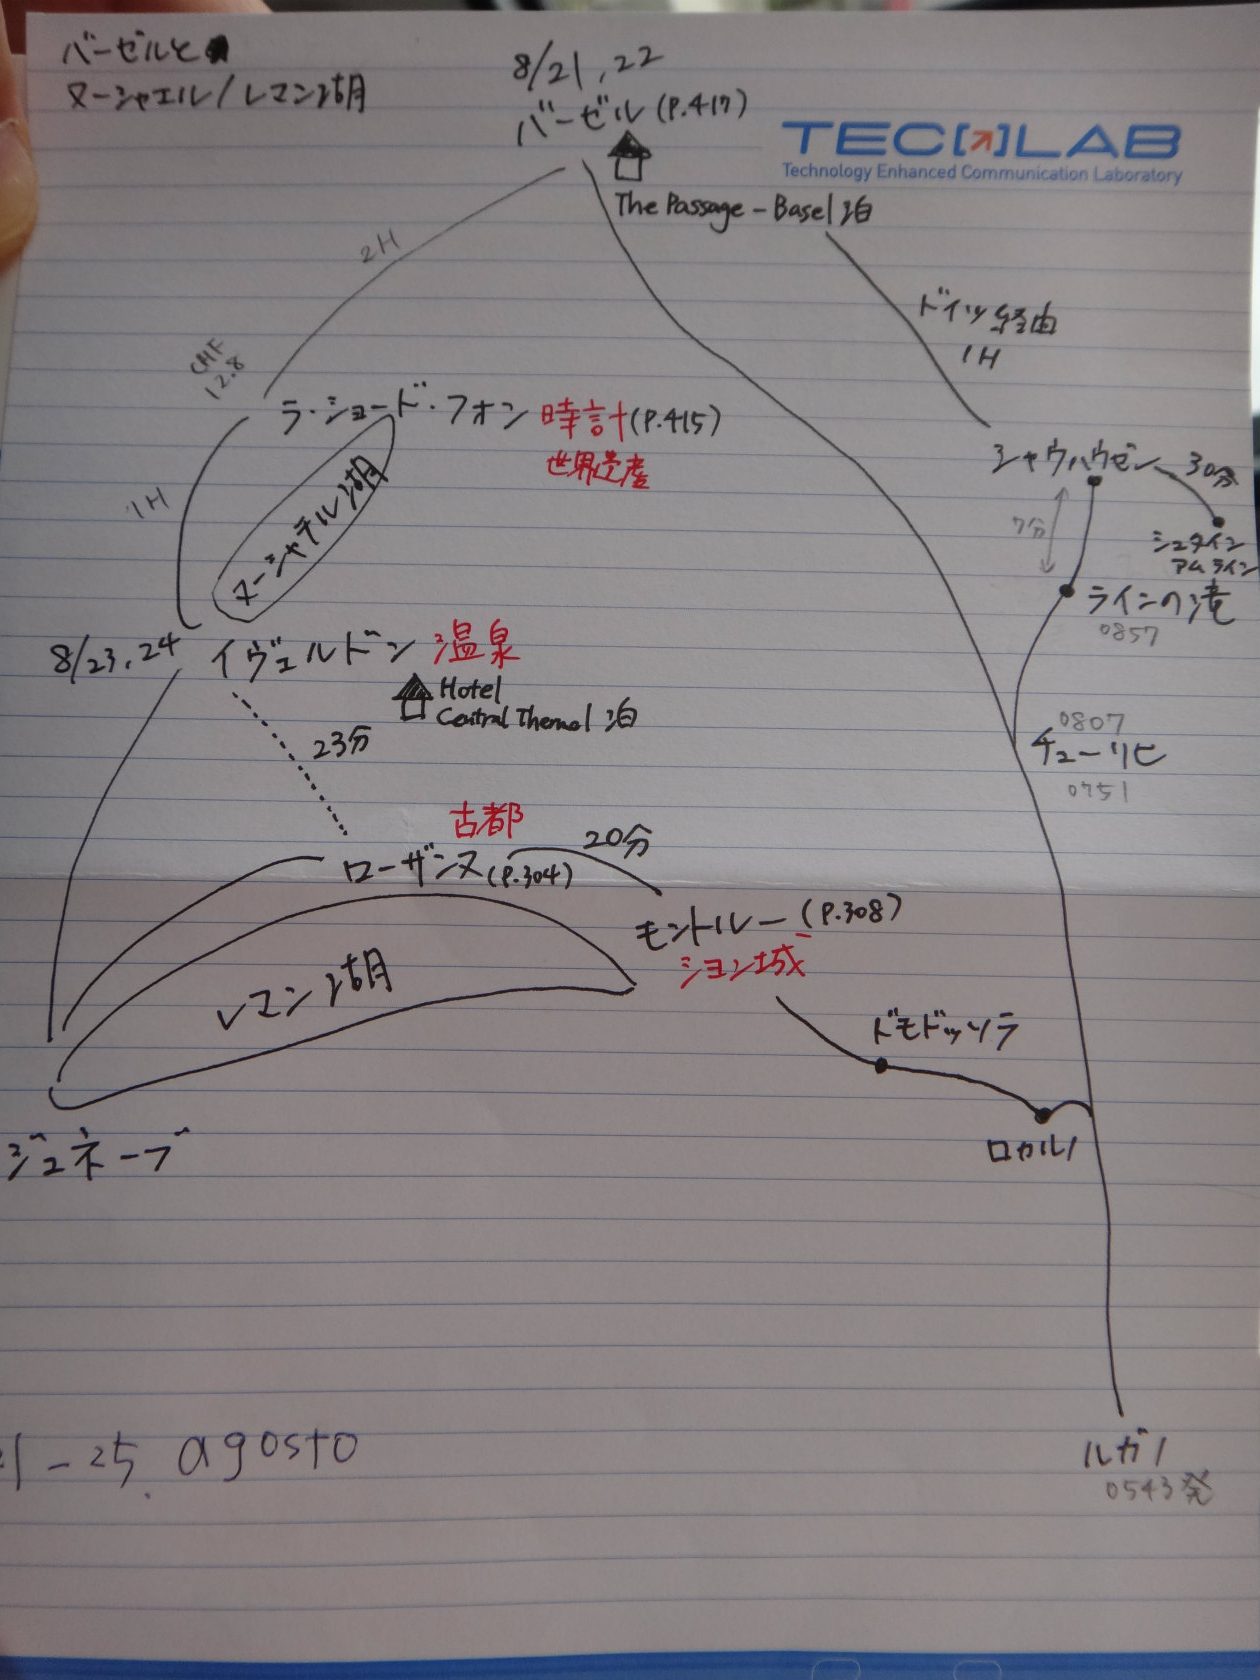 バーゼルと
ヌーシャエル/レマン湖
8/21,22
バーゼル(P.417)
TEC[↗]LAB
Technology Enhanced Communication Laboratory
The Passage - Basel 泊
2H
ドイツ経由
1H
CHF
12.8
ラ・ショード・フォン 時計(P.415)
世界遺産
シャウハウゼン 30分
ヌーシャテル湖
1H
7分
シュタイン
アム ライン
ラインの滝
0857
8/23,24 イヴェルドン 温泉
Hotel
Central Thermal 泊
23分
0807
チューリヒ
0751
古都
ローザンヌ(P.304)
20分
モントルー(P.308)
シヨン城
レマン湖
ドモドッソラ
ロカルノ
ジュネーブ
21-25. agosto
ルガノ
0543発